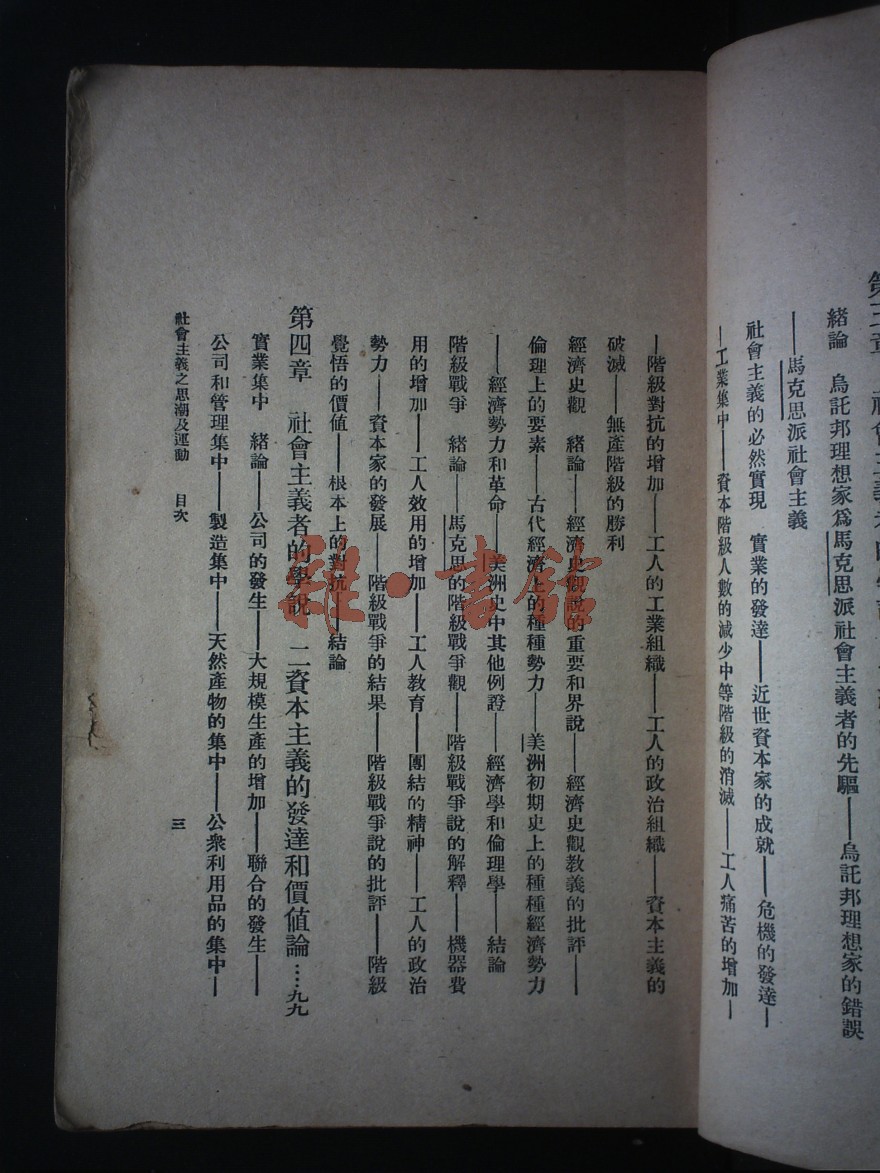 緒論　烏託邦理想家爲馬克思派社會主義者的先驅——烏託邦理想家的錯誤
——馬克思派社會主義
社會主義的必然實現　實業的發達——近世資本家的成就——危機的發達—
—工業集中——資本階級人數的減少中等階級的消滅——工人痛苦的增加—
—階級對抗的增加——工人的工業組織——工人的政治組織——資本主義的
破滅——無產階級的勝利
經濟史觀　緒論——經濟史觀說的重要和界說——經濟史觀教義的批評——
倫理上的要素——古代經濟上的種種勢力——美洲初期史上的種種經濟勢力
——經濟勢力和革命——美洲史中其他例證——經濟學和倫理學——結論
階級戰爭　緒論——馬克思的階級戰爭觀——階級戰爭說的解釋——機器費
用的增加——工人效用的增加——工人教育——團結的精神——工人的政治
勢力——資本家的發展——階級戰爭的結果——階級戰爭說的批評——階級
覺悟的價值——根本上的對抗——結論
第四章　社會主義者的學說　二資本主義的發達和價值論…九九
實業集中　緒論——公司的發生——大規模生產的增加——聯合的發生——
公司和管理集中——製造集中——天然產物的集中——公衆利用品的集中—
社會主義之思潮及運動　目次
三
雜·書館